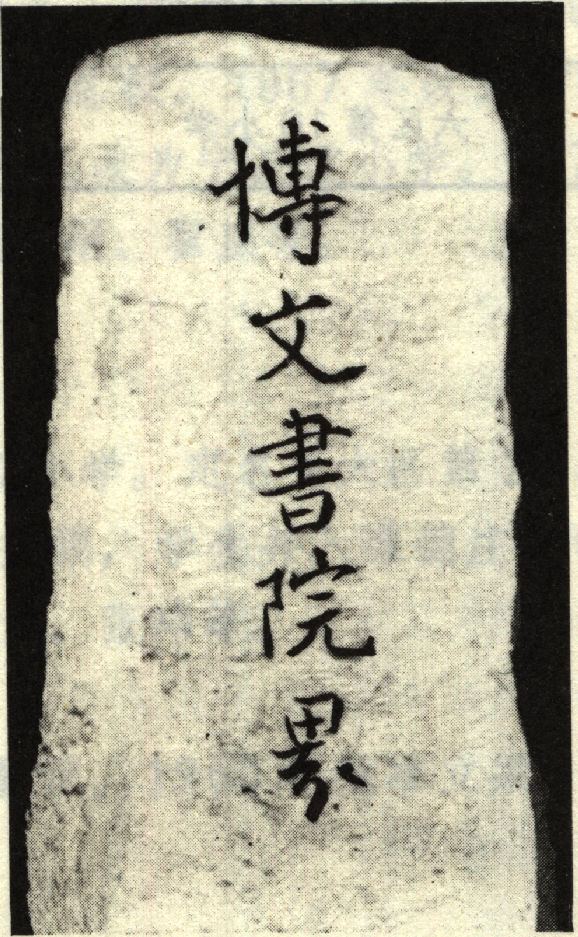 博文書院界